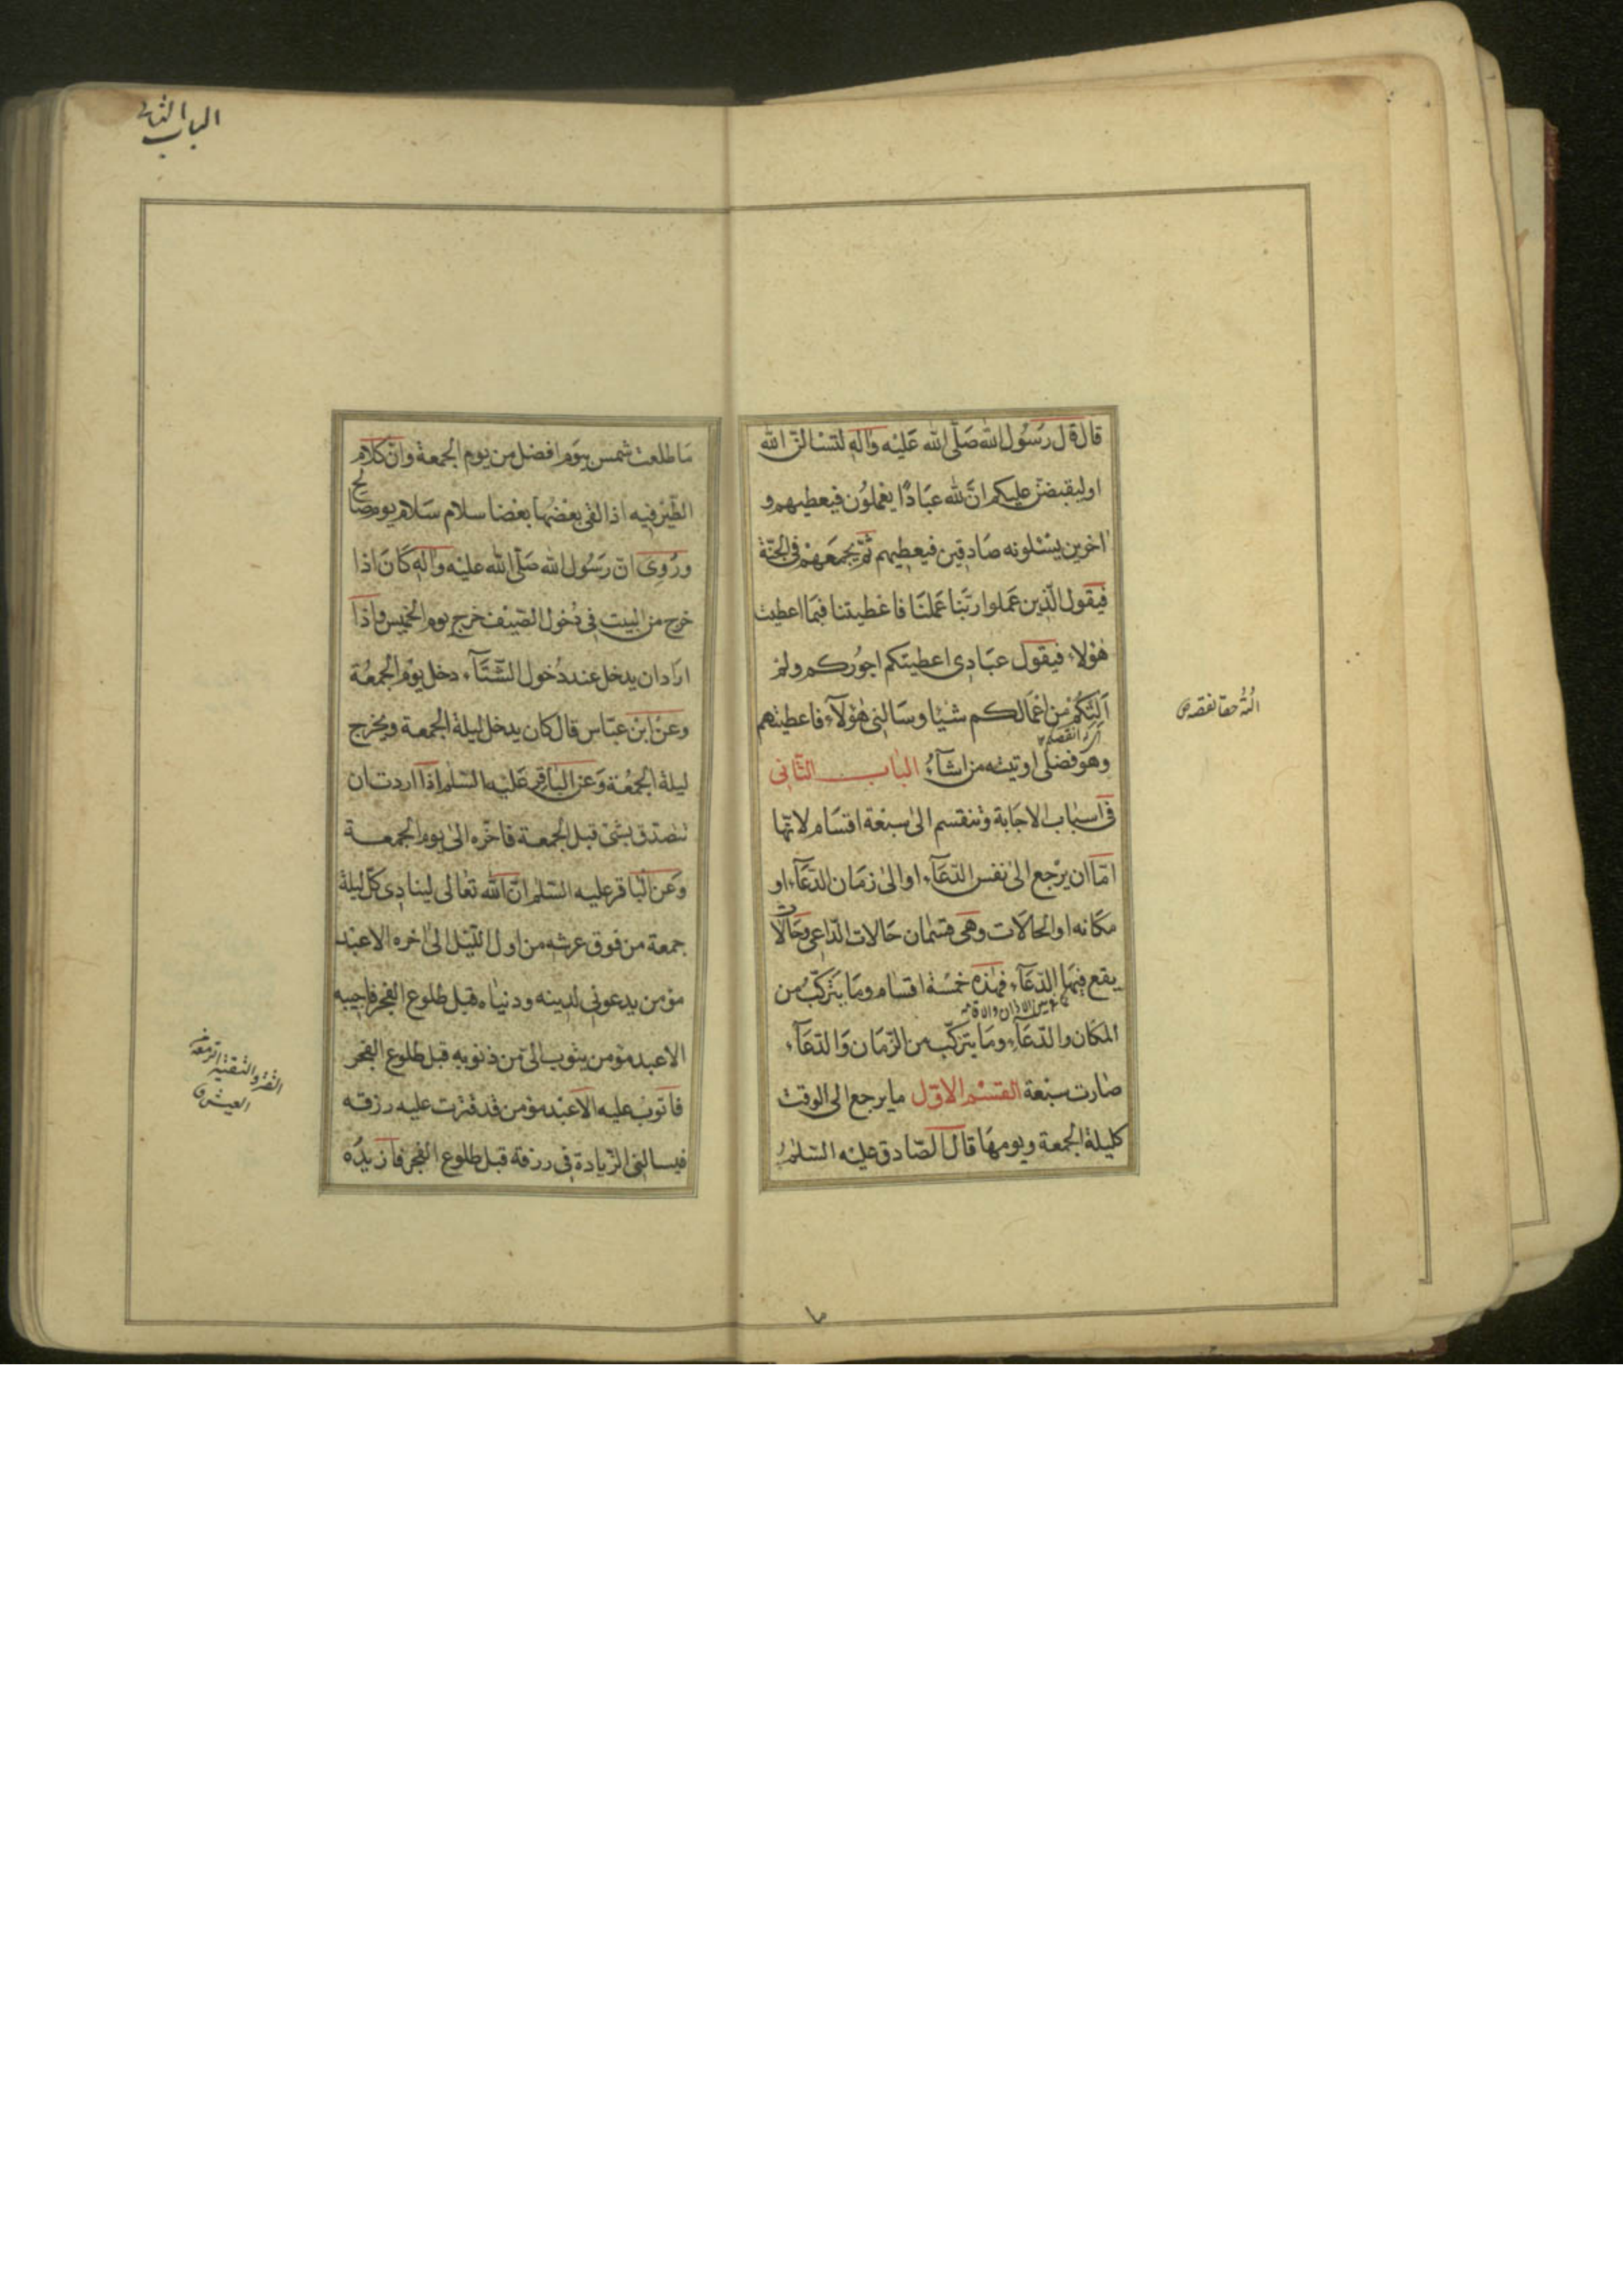 قال قال رسول الله صلى الله عليه واله لتسالن الله
او ليقبضن عليكم ان لله عبادا يعملون فيعطيهم و
اخرين يسئلونه صادقين فيعطيهم ثم يجمعهم فى الجنة
فيقول الذين عملوا ربنا عملنا فاعطيتنا فبما اعطيت
هؤلاء فيقول عبادى اعطيتكم اجوركم ولم
آلتكم من اعمالكم شيئا وسالنى هؤلآء فاعطيتهم
وهو فضلى اوتيته من اشآء الباب الثانى
فى اسباب الاجابة وتنقسم الى سبعة اقسام لانها
اما ان يرجع الى نفس الدعآء او الى زمان الدعآء او
مكانه او الحالات وهى قسمان حالات الداعى وحالات
يقع فيها الدعآء فهذه خمسة اقسام وما يتركب من
المكان والدعآء وما يتركب من الزمان والدعآء
صارت سبعة القسم الاول ما يرجع الى الوقت
كليلة الجمعة ويومها قال الصادق عليه السلم
الباب الثانى
ما طلعت شمس بيوم افضل من يوم الجمعة وان كلام
الطير فيه اذا لقى بعضها بعضا سلام سلام يوم صالح
وروى ان رسول الله صلى الله عليه واله كان اذا
خرج من البيت فى دخول الصيف خرج يوم الخميس واذا
اراد ان يدخل عند دخول الشتآء دخل يوم الجمعة
وعن ابن عباس قال كان يدخل ليلة الجمعة ويخرج
ليلة الجمعة وعن الباقر عليه السلم اذا اردت ان
تتصدق بشئ قبل الجمعة فاخره الى يوم الجمعة
وعن الباقر عليه السلم ان الله تعالى لينادى كل ليلة
جمعة من فوق عرشه من اول الليل الى اخره الا عبد
مؤمن يدعونى لدينه ودنياه قبل طلوع الفجر فاجيبه
الا عبد مؤمن يتوب الى من ذنوبه قبل طلوع الفجر
فاتوب عليه الا عبد مؤمن قد قترت عليه رزقه
فيسالنى الزيادة فى رزقه قبل طلوع الفجر فازيده